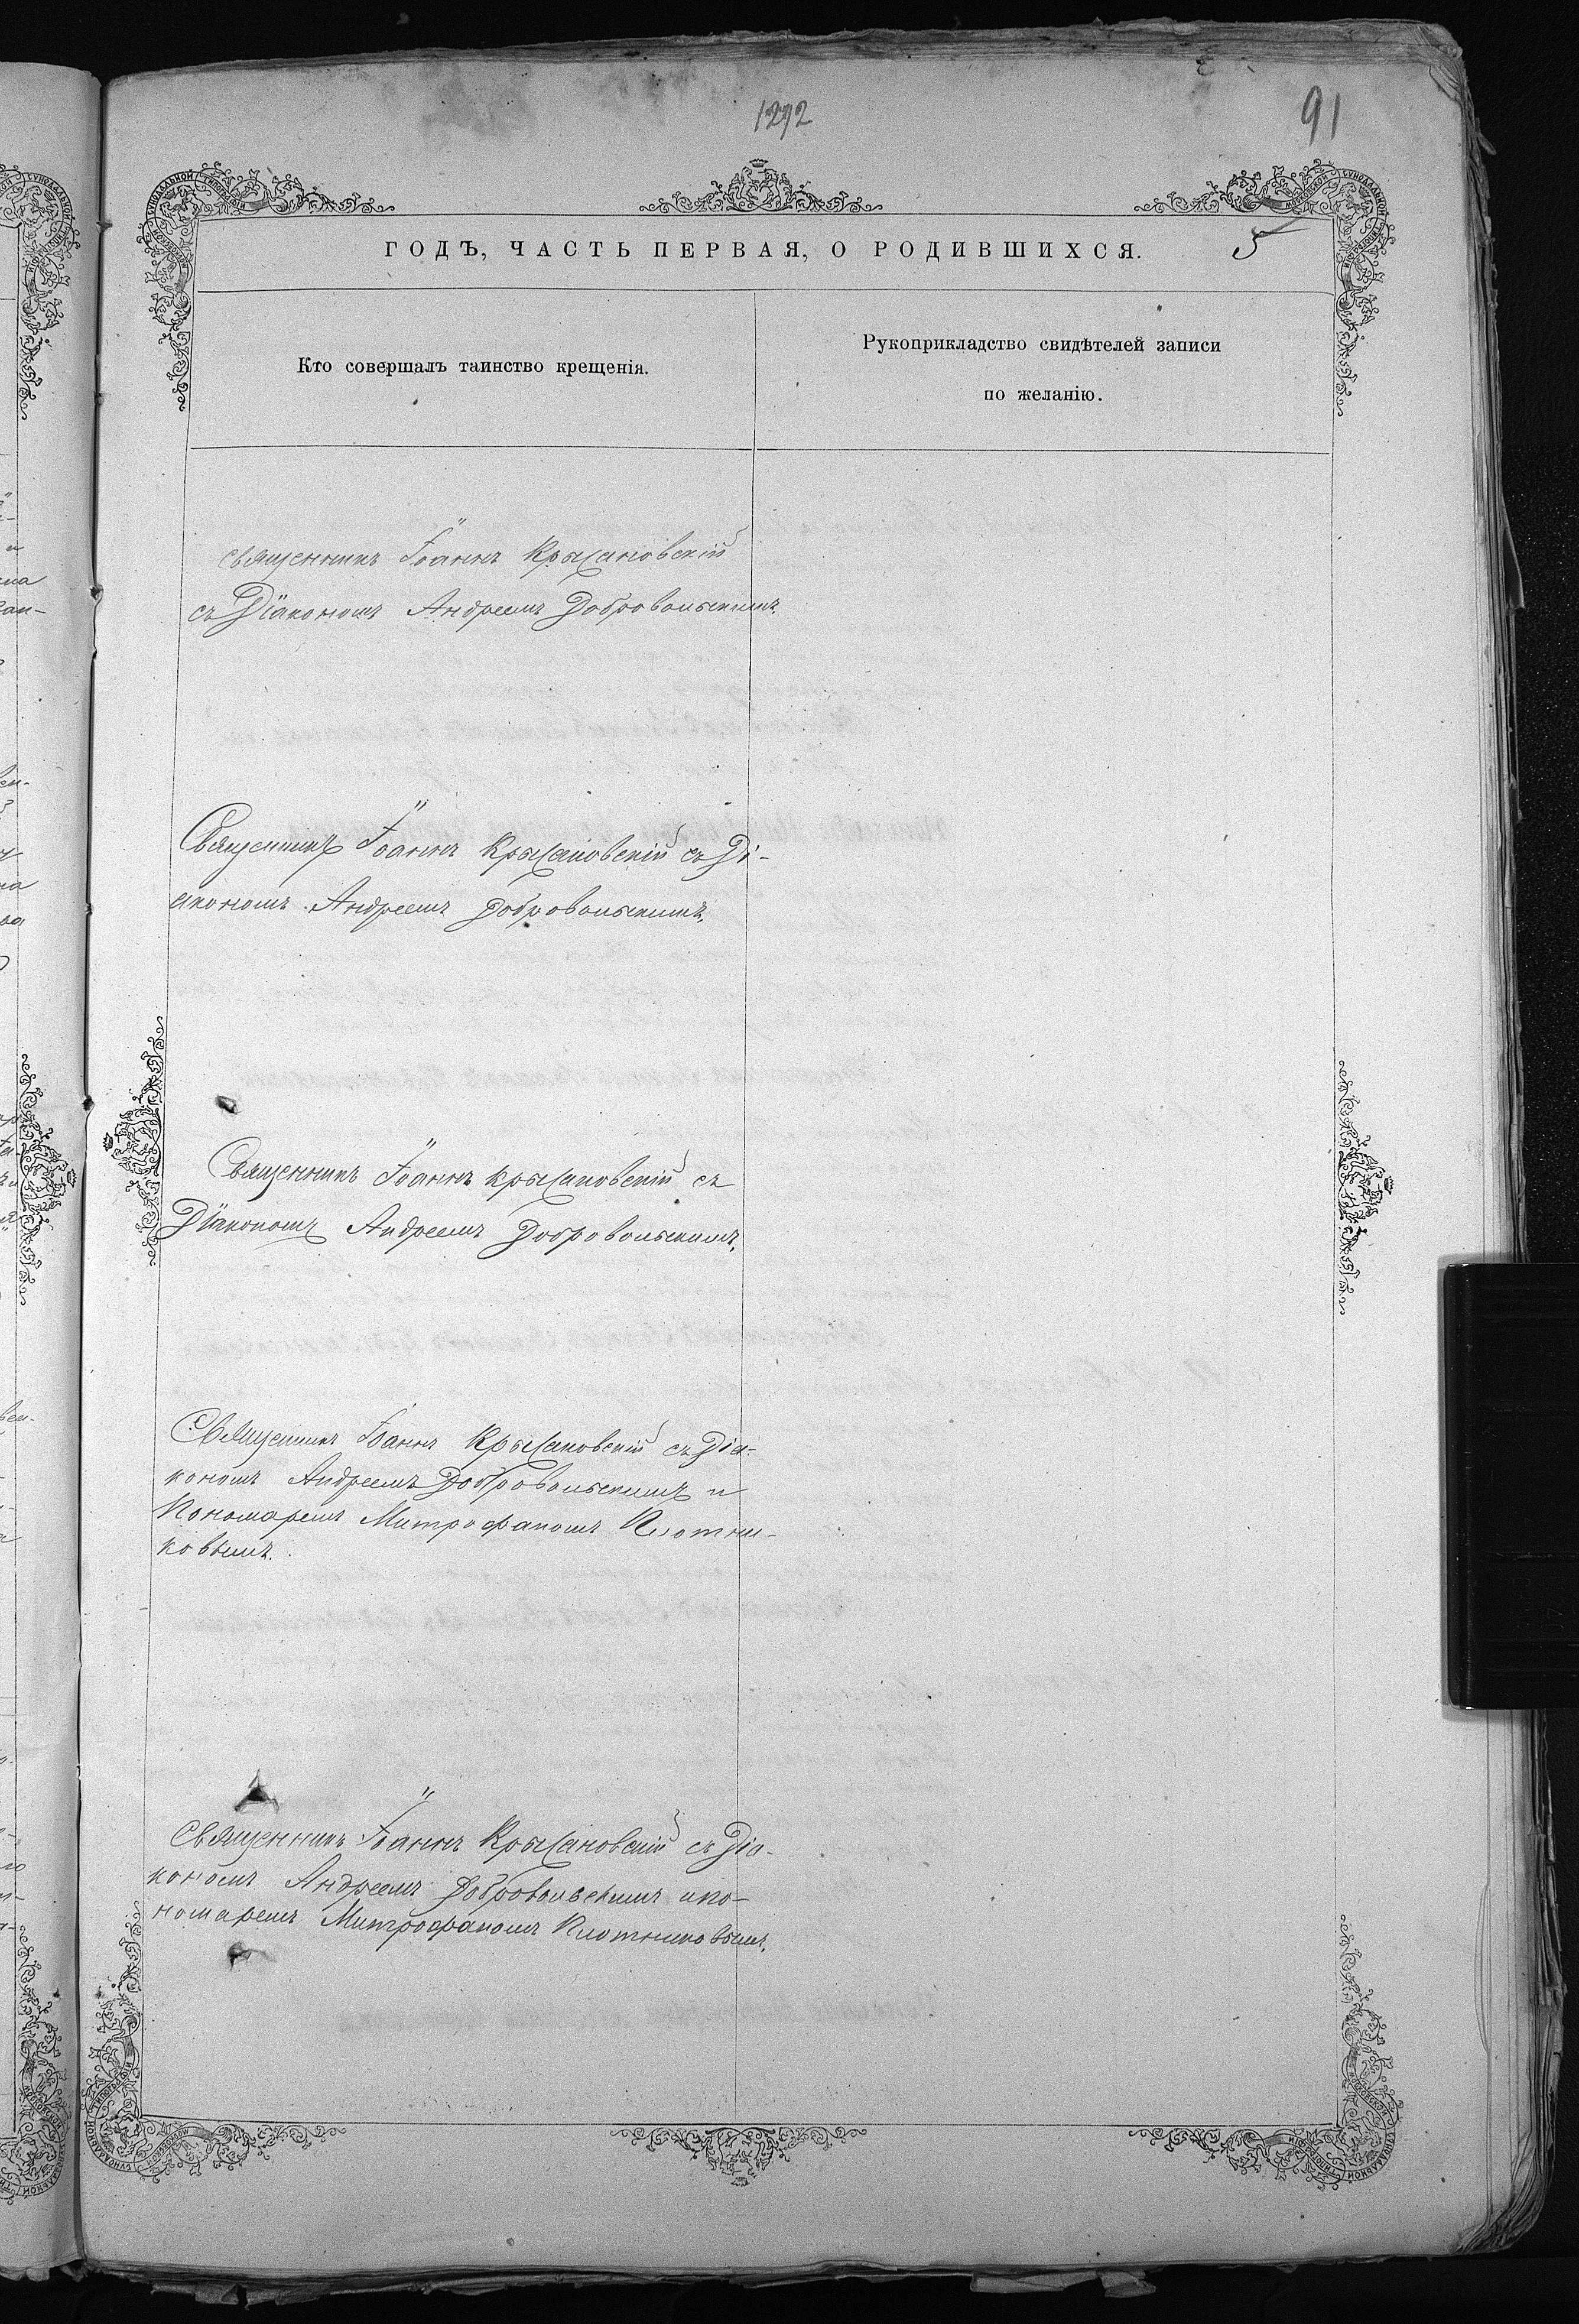 1292
91
ГОДЪ, ЧАСТЬ ПЕРВАЯ, О РОДИВШИХСЯ.
5
Кто совершалъ таинство крещенія.
Рукоприкладство свидѣтелей записи
по желанію.
священникъ Іоаннъ Крысановскій
съ Діакономъ Андреемъ Добровольскимъ.
Священникъ Іоаннъ Крысановскій съ Ді-
акономъ Андреемъ Добровольскимъ.
Священникъ Іоаннъ Крысановскій съ
Діакономъ Андреемъ Добровольскимъ.
Священникъ Іоаннъ Крысановскій съ Діа-
кономъ Андреемъ Добровольскимъ и
Пономаремъ Митрофаномъ Плотни-
ковымъ.
Священникъ Іоаннъ Крысановскій съ Діа-
кономъ Андреемъ Добровольскимъ и по-
номаремъ Митрофаномъ Плотниковымъ.